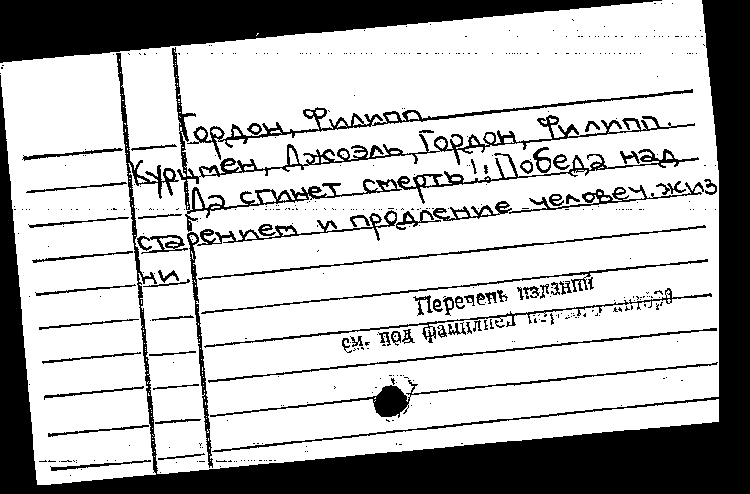 Гордон, Филипп.
Курцмен, Джоэль, Гордон, Филипп.
Да сгинет смерть!: Победа над
старением и продление человеч. жиз
ни.
Перечень изданий
см. под фамилией первого автора